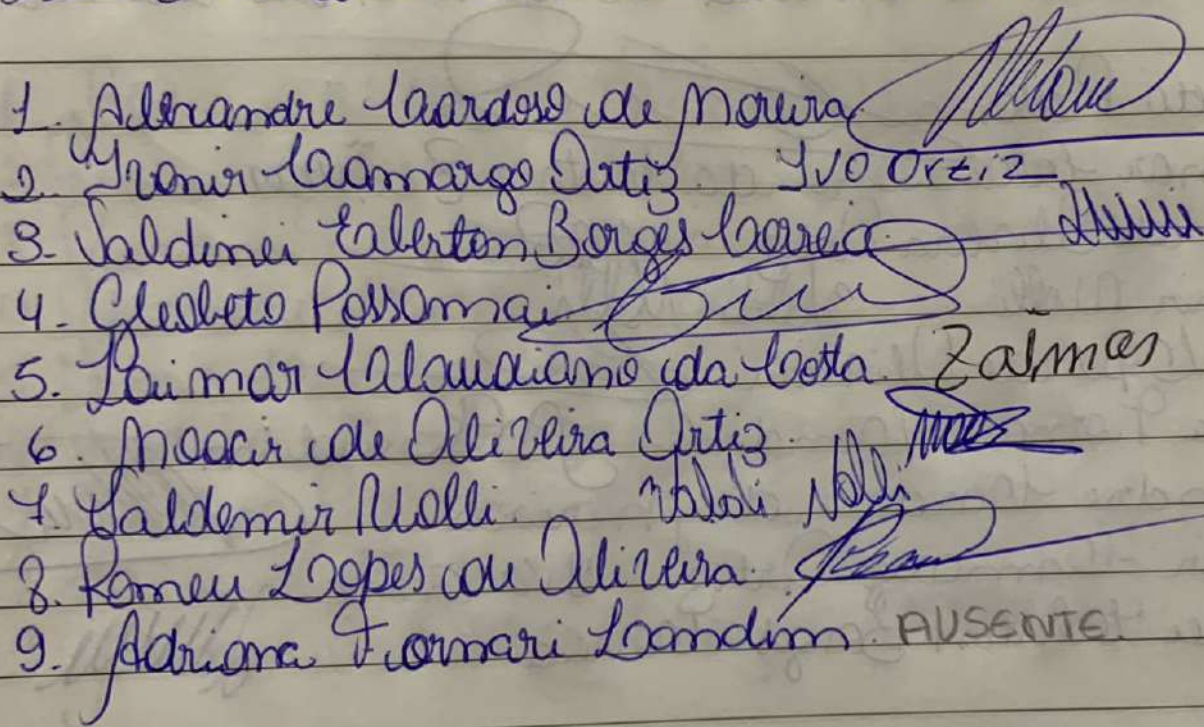 1. Alexandre Cardoso de Moreira
2. Ivonir Camargo Ortiz. Ivo Ortiz
3. Valdinei Ewerton Borges Correa
4. Cleobeto Possamai
5. Loimar Claudiano da Costa. Zaimas
6. Moacir de Oliveira Ortiz.
7. Valdemir Nolli. Nolli
8. Romeu Lopes de Oliveira.
9. Adriana Fornari Landim. AUSENTE.